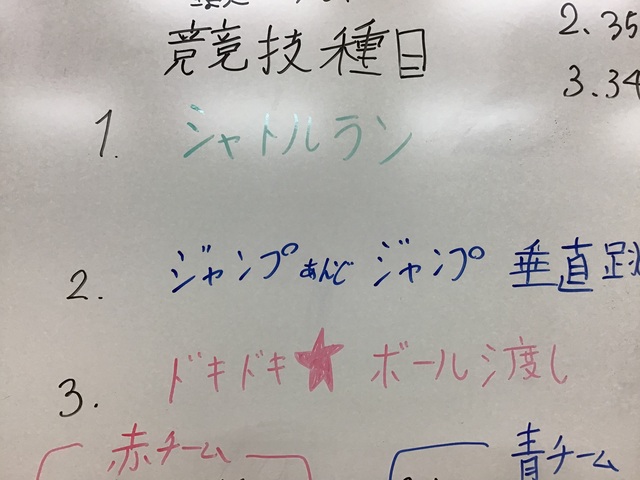 競技種目
2.35
3.34
1. シャトルラン
2. ジャンプあんど ジャンプ 垂直跳
3. ドキドキ★ ボール渡し
赤チーム
青チーム